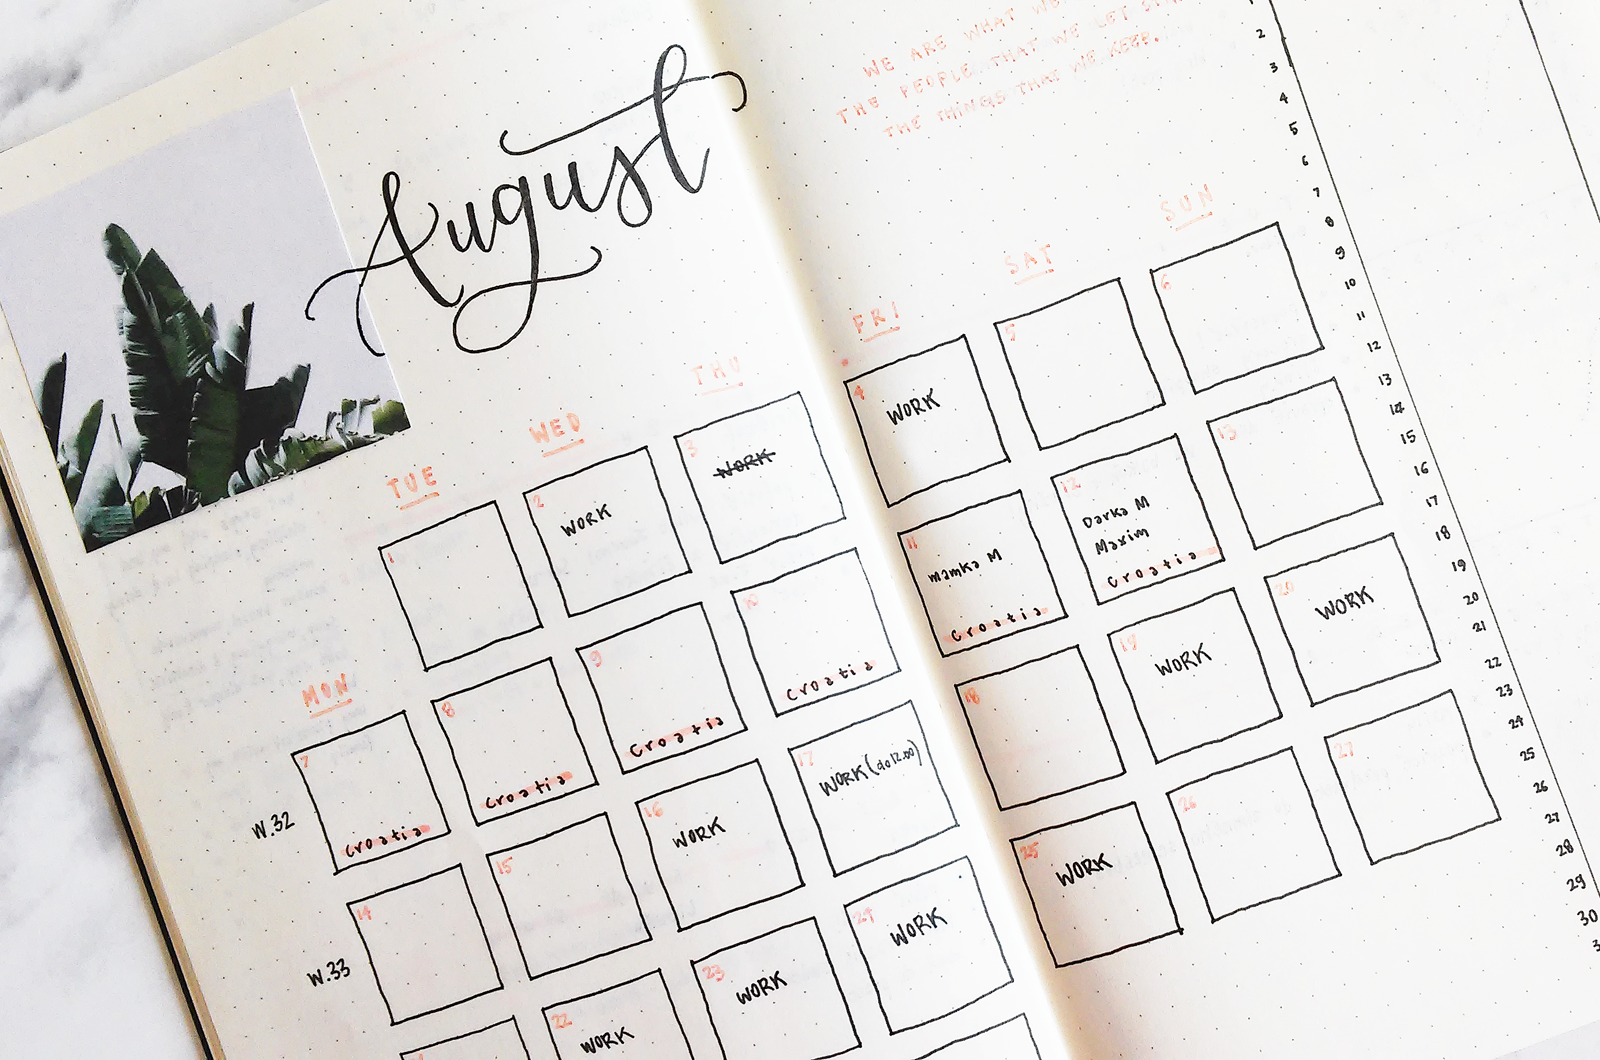 August
WE ARE WHAT WE
THE PEOPLE THAT WE LET
THE THINGS THAT WE KEEP.
MON
TUE
WED
THU
FRI
SAT
SUN
1
2
WORK
3
WORK
4
WORK
5
6
W.32
7
Croatia
8
Croatia
9
Croatia
10
Croatia
11
mamka M
Croatia
12
Darka M
Maxim
Croatia
13
W.33
14
15
16
WORK
17
WORK (do 12.00)
18
19
WORK
20
WORK
22
WORK
23
WORK
24
WORK
25
WORK
26
27
2
3
4
5
6
7
8
9
10
11
12
13
14
15
16
17
18
19
20
21
22
23
24
25
26
27
28
29
30